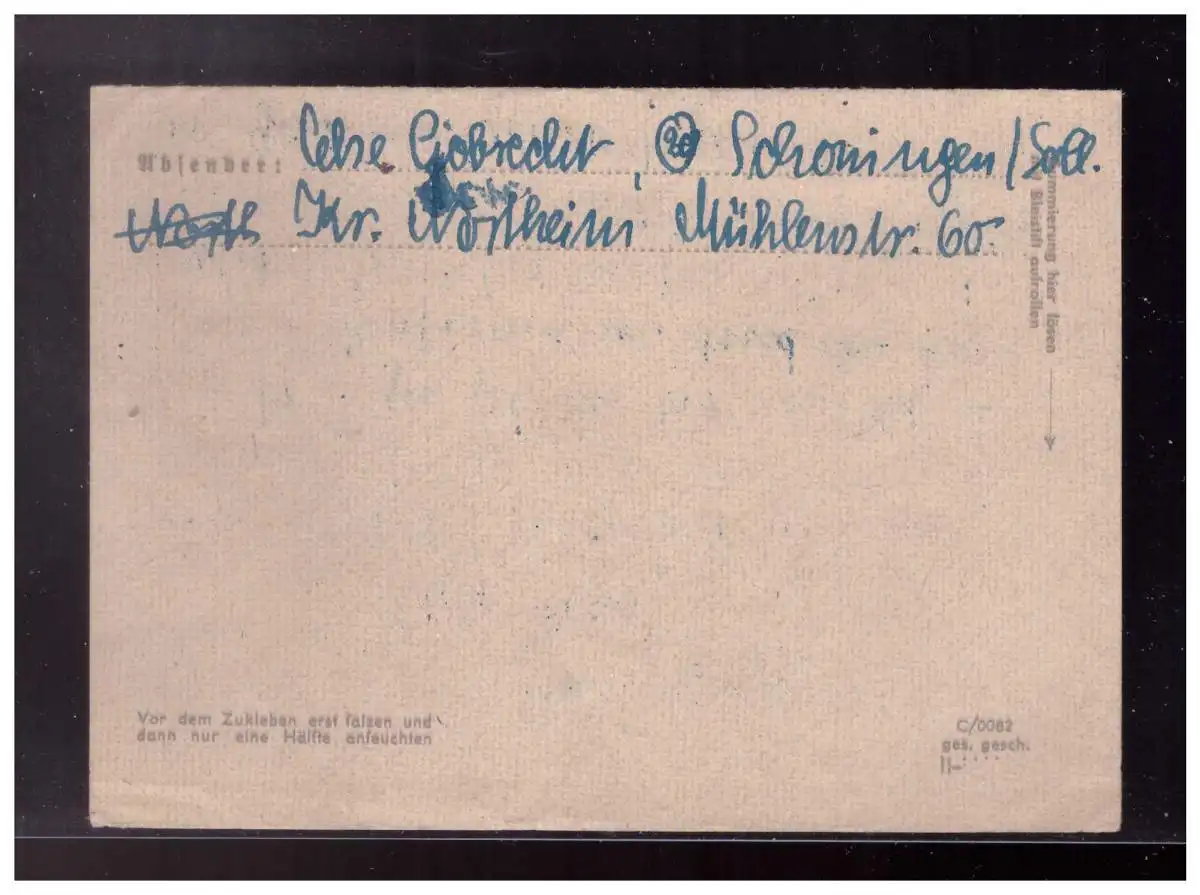 Absender: Giobrecht, (20) Schoningen / Soll.
Kr. Northeim Mühlenstr. 60.
Gummierung hier lösen
Bleistift aufrollen
Vor dem Zukleben erst falzen und
dann nur eine Hälfte anfeuchten
C/0082
ges. gesch.